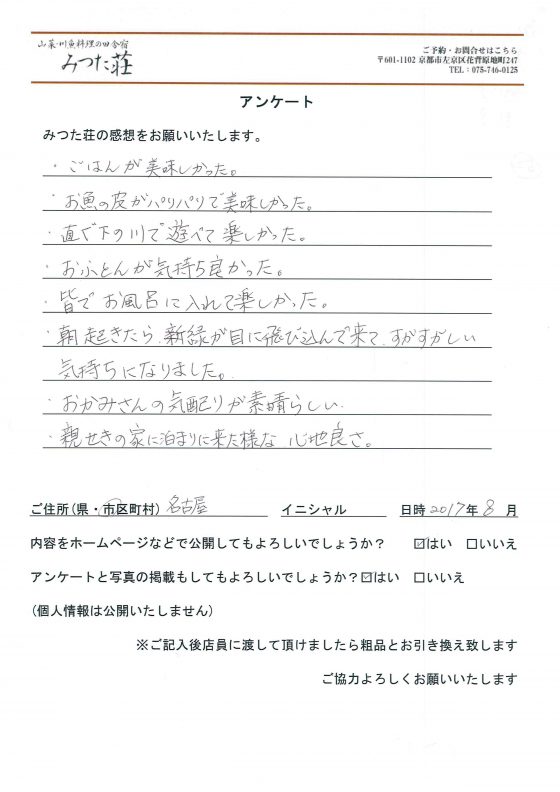 山菜・川魚料理の田舎宿
みつた荘
ご予約・お問合せはこちら
〒601-1102 京都市左京区花脊原地町247
TEL：075-746-0125
アンケート
みつた荘の感想をお願いいたします。
・ごはんが美味しかった。
・お魚の皮がパリパリで美味しかった。
・直ぐ下の川で遊べて楽しかった。
・おふとんが気持ち良かった。
・皆でお風呂に入れて楽しかった。
・朝起きたら、新緑が目に飛び込んで来て、すがすがしい
気持ちになりました。
・おかみさんの気配りが素晴らしい。
・親せきの家に泊まりに来た様な心地良さ。
ご住所(県・市区町村) 名古屋 イニシャル 日時 2017年 8 月
内容をホームページなどで公開してもよろしいでしょうか？ ☑はい □いいえ
アンケートと写真の掲載もしてもよろしいでしょうか？☑はい □いいえ
(個人情報は公開いたしません)
※ご記入後店員に渡して頂けましたら粗品とお引き換え致します
ご協力よろしくお願いいたします